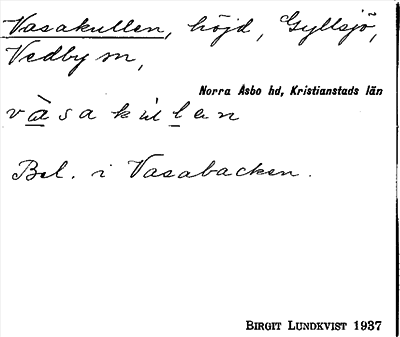 Vasakullen, höjd, Gyllsjö,
Vedby sn,
Norra Åsbo hd, Kristianstads län
vàsakùlen
Bel. i Vasabacken.
BIRGIT LUNDKVIST 1937